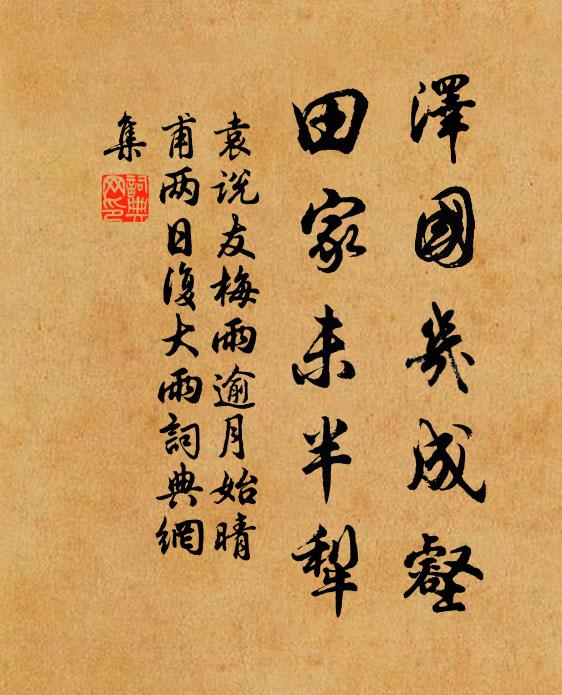 澤國幾成壑
田家未半犁
袁说友梅雨逾月始晴
甫两日復大雨詞典網
集
詞典
网印